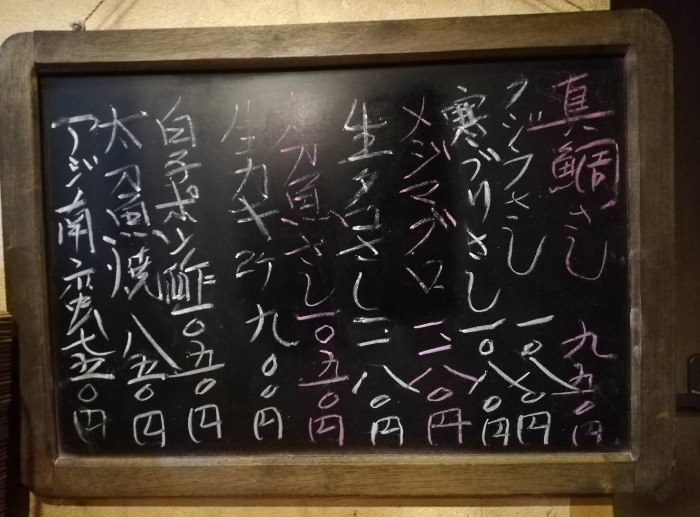 真鯛さし 九五〇円
クジラさし 一〇八〇円
寒ぶりさし 一〇八〇円
メジマグロ 一二八〇円
生タコさし 一二八〇円
太刀魚さし 一〇五〇円
生カキ2ケ 九〇〇円
白子ポン酢 一〇五〇円
太刀魚焼 八五〇円
アジ南蛮 七五〇円